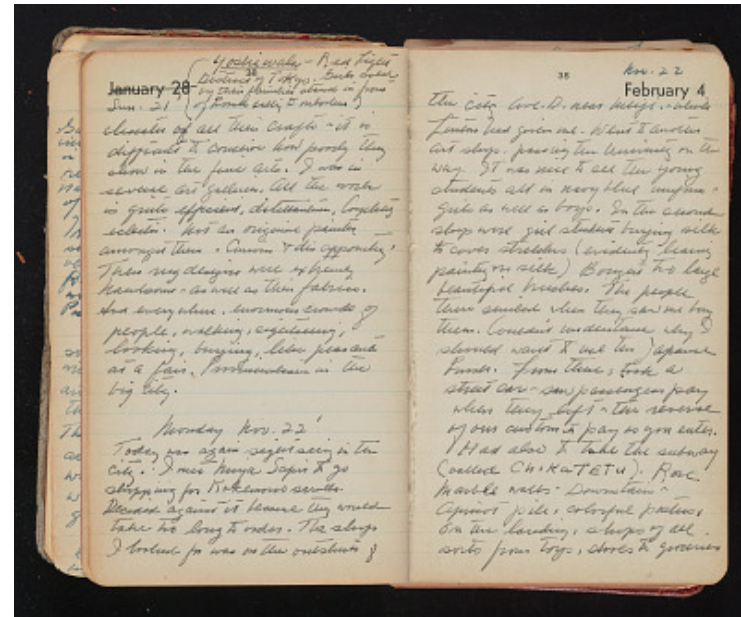 Yoshiwara - Red Light
District of Tokyo. Girls
by their families stand in front
38
January 28
Sun. 21
of all their crafts - it is
difficult to conceive how poorly they
show in the fine arts. I was in
several art galleries. All the work
is quite efficient,
eclectic. Not an original painter
amongst them.
Their rug designs were extremely
handsome - as well as their fabrics.
And everywhere, enormous crowds of
people, walking, sightseeing,
looking, buying, like peasants
at a fair. in the
big city.
Monday Nov. 22
Today was again sightseeing in the
city. I met to go
shopping for Kakemono scrolls.
Decided against it because they would
take too long to order. The shop
I looked for was on the outskirts of
38
Nov. 22
February 4
the city
had given me. Went to another
art shop, passing the University on the
way. It was nice to see the young
students all in navy blue uniforms -
girls as well as boys. In the second
shop were girl students buying silk
to cover stretches (evidently
painting on silk) Bought two large
beautiful brushes. The people
there smiled when they saw me buy
them. Couldn't understand why I
should want to use the Japanese
brush. From there, took a
street car - saw passengers pay
when they left - the reverse
of our custom to pay as you enter.
Had also to take the subway
(called CHIKATETU). Rose
marble walls - Downstairs -
posters,
On the landing, shops of all
sorts from toys, to groceries